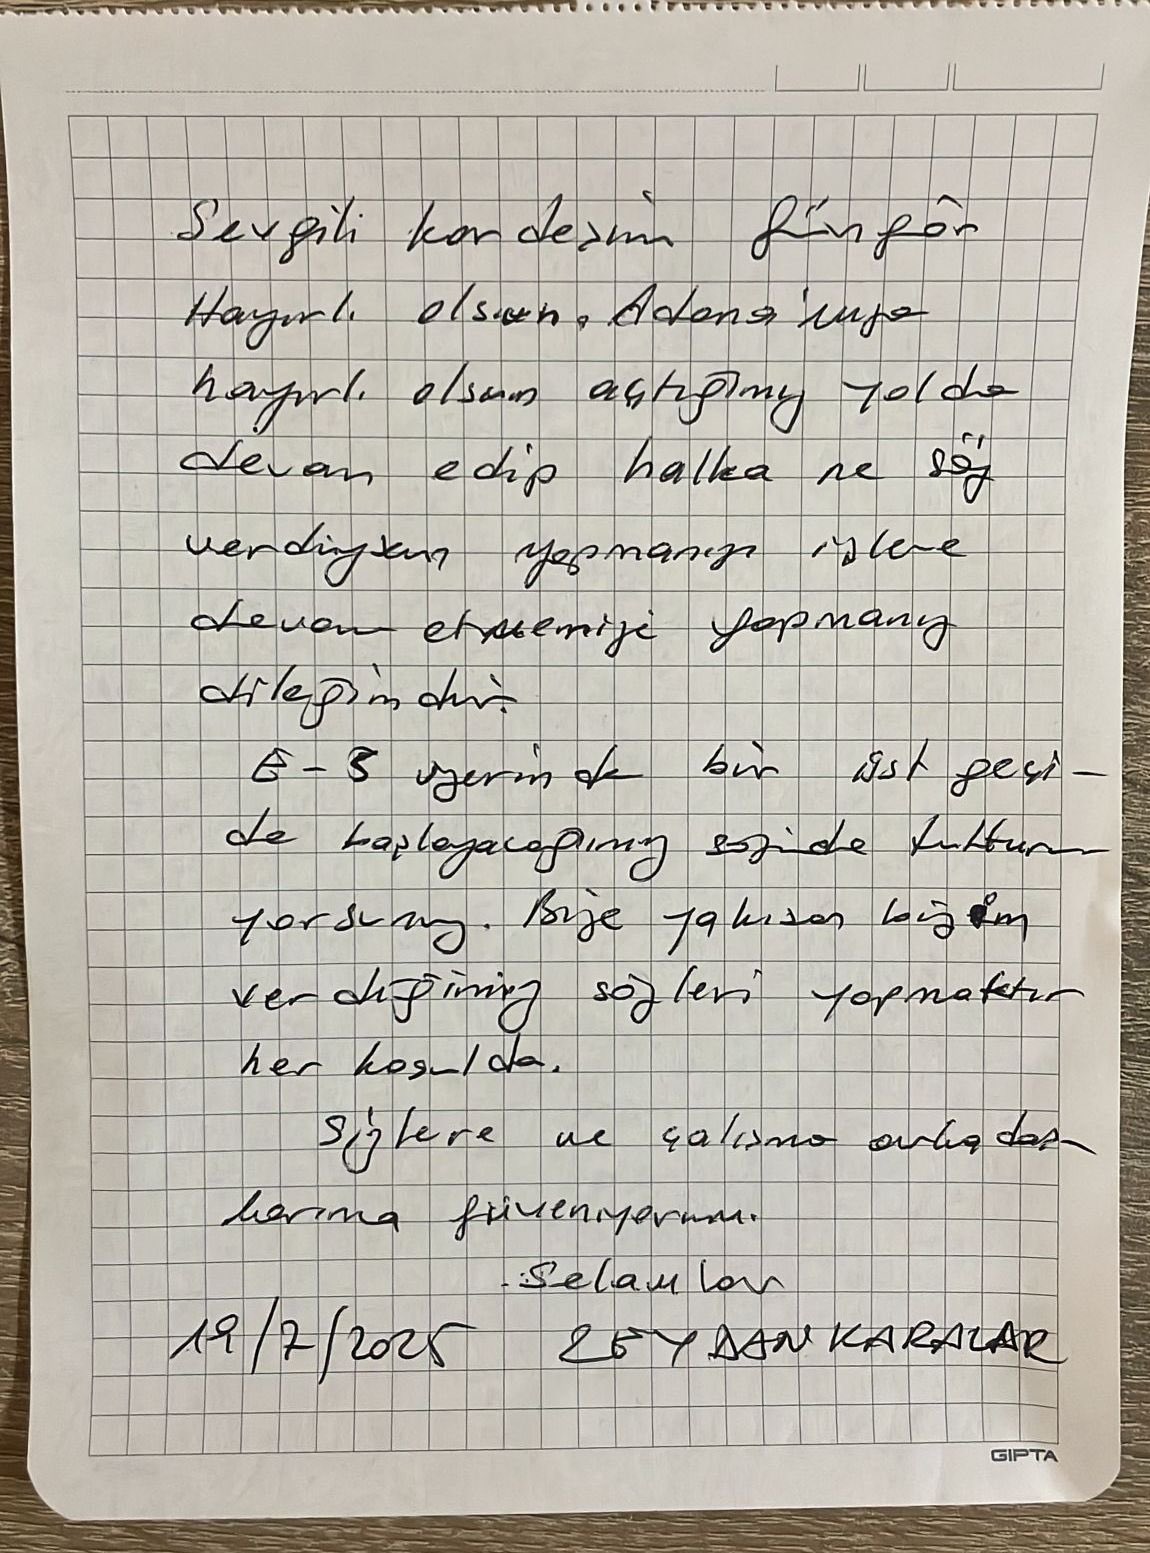 Sevgili kardeşim Güngör
Hayırlı olsun. Adana'mıza
hayırlı olsun açtığımız yolda
devam edip halka ne söz
verdiysem yapmanızı işlere
devam etmemizi yapmanız
dileğimdir.
E-5 üzerinde bir üst geçi-
de başlayacağımız sözünde
yorsunuz. Bize yakışan bizim
verdiğimiz sözleri yapmaktır
her koşulda.
Sizlere ve çalışma arkadaş-
larıma güveniyorum.
Selamlar
19/7/2025 ZEYDAN KARALAR
GIPTA